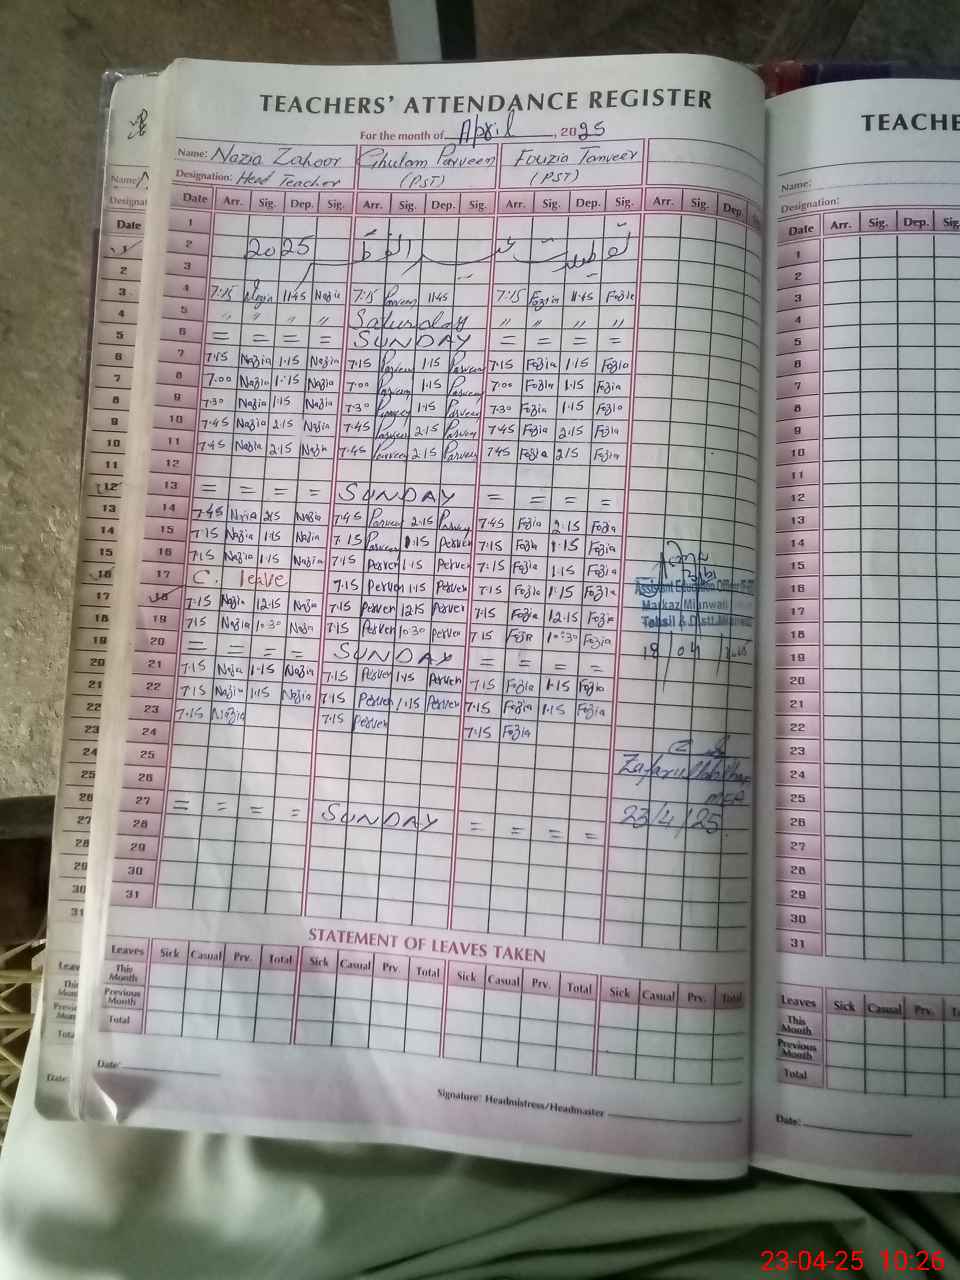 TEACHERS' ATTENDANCE REGISTER
For the month of April, 2025
Name: Nazia Zahoor Ghulam Parveen Fouzia Tanveer
Designation: Head Teacher (PST) (PST)
Date Arr. Sig. Dep. Sig. Arr. Sig. Dep. Sig. Arr. Sig. Dep. Sig. Arr. Sig. Dep.
1
2 2025
3
4 7:15 Nazia 11:45 Nazia 7:15 Parveen 11:45 7:15 Fozia 11:45 Fozia
5 " " " " Saturday " " " "
6 = = = = SUNDAY = = = =
7 7:15 Nazia 1:15 Nazia 7:15 Parveen 1:15 Parveen 7:15 Fozia 1:15 Fozia
8 7:00 Nazia 1:15 Nazia 7:00 Parveen 1:15 Parveen 7:00 Fozia 1:15 Fozia
9 7:30 Nazia 1:15 Nazia 7:30 Parveen 1:15 Parveen 7:30 Fozia 1:15 Fozia
10 7:45 Nazia 2:15 Nazia 7:45 Parveen 2:15 Parveen 7:45 Fozia 2:15 Fozia
11 7:45 Nazia 2:15 Nazia 7:45 Parveen 2:15 Parveen 7:45 Fozia 2:15 Fozia
12
13 = = = = SUNDAY = = = =
14 7:45 Nazia 2:15 Nazia 7:45 Parveen 2:15 Parveen 7:45 Fozia 2:15 Fozia
15 7:15 Nazia 1:15 Nazia 7:15 Parveen 1:15 Perven 7:15 Fozia 1:15 Fozia
16 7:15 Nazia 1:15 Nazia 7:15 Perven 1:15 Perven 7:15 Fozia 1:15 Fozia
17 C. leave 7:15 Perven 1:15 Perven 7:15 Fozia 1:15 Fozia
18 7:15 Nazia 12:15 Nazia 7:15 Perven 12:15 Perven 7:15 Fozia 12:15 Fozia
19 7:15 Nazia 10:30 Nazia 7:15 Perven 10:30 Perven 7:15 Fozia 10:30 Fozia
20 = = = = SUNDAY = = = =
21 7:15 Nazia 1:15 Nazia 7:15 Perven 1:15 Perven 7:15 Fozia 1:15 Fozia
22 7:15 Nazia 1:15 Nazia 7:15 Perven 1:15 Perven 7:15 Fozia 1:15 Fozia
23 7:15 Nazia 7:15 Perven 7:15 Fozia
24
25
26
27 = = = = SUNDAY = = = =
28
29
30
31
Assistant Education Officer
Markaz Mianwali
Tehsil & Distt.
18/04/2025
Zafarullah Khan
MEA
23/4/25
STATEMENT OF LEAVES TAKEN
Leaves Sick Casual Prv. Total Sick Casual Prv. Total Sick Casual Prv. Total Sick Casual Prv. Total
This Month
Previous Month
Total
Date:
Signature: Headmistress/Headmaster
TEACHE
Name:
Designation:
Date Arr. Sig. Dep. Sig.
1
2
3
4
5
6
7
8
9
10
11
12
13
14
15
16
17
18
19
20
21
22
23
24
25
26
27
28
29
30
31
Leaves Sick Casual Prv.
This Month
Previous Month
Total
Date:
23-04-25 10:26